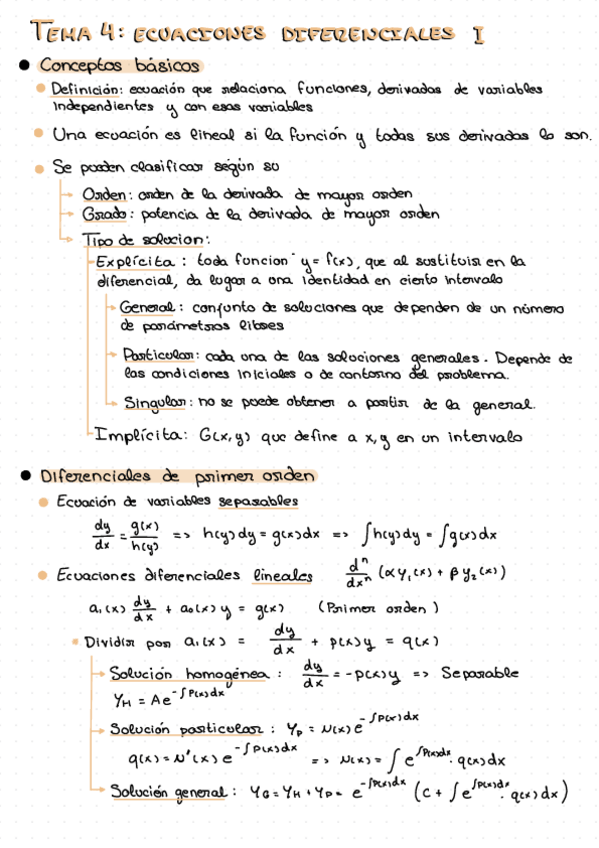 TEMA 4: ECUACIONES DIFERENCIALES I
Conceptos básicos
Definición: ecuación que relaciona funciones, derivadas de variables
independientes y con esas variables
Una ecuación es lineal si la función y todas sus derivadas lo son.
Se pueden clasificar según su
Orden: orden de la derivada de mayor orden
Grado: potencia de la derivada de mayor orden
Tipo de solucion:
Explícita: toda funcion y = f(x), que al sustituir en la
diferencial, da lugar a una identidad en cierto intervalo
General: conjunto de soluciones que dependen de un número
de parámetros libres
Particular: cada una de las soluciones generales. Depende de
las condiciones iniciales o de contorno del problema.
Singular: no se puede obtener a partir de la general.
Implícita: G(x,y) que define a x,y en un intervalo
Diferenciales de primer orden
Ecuación de variables separables
dy/dx = g(x)/h(y) => h(y)dy = g(x)dx => ∫h(y)dy = ∫g(x)dx
Ecuaciones diferenciales lineales dⁿ/dxⁿ (αy₁(x) + βy₂(x))
a₁(x) dy/dx + a₀(x)y = g(x) (Primer orden)
Dividir por a₁(x) = dy/dx + p(x)y = q(x)
Solución homogénea: dy/dx = -p(x)y => Separable
Y_H = Ae^(-∫P(x)dx)
Solución particular: Y_p = N(x)e^(-∫P(x)dx)
q(x) = N'(x)e^(-∫P(x)dx) => N(x) = ∫e^(∫P(x)dx) · q(x)dx
Solución general: Y_G = Y_H + Y_P = e^(-∫P(x)dx) (C + ∫e^(∫P(x)dx) · q(x)dx)